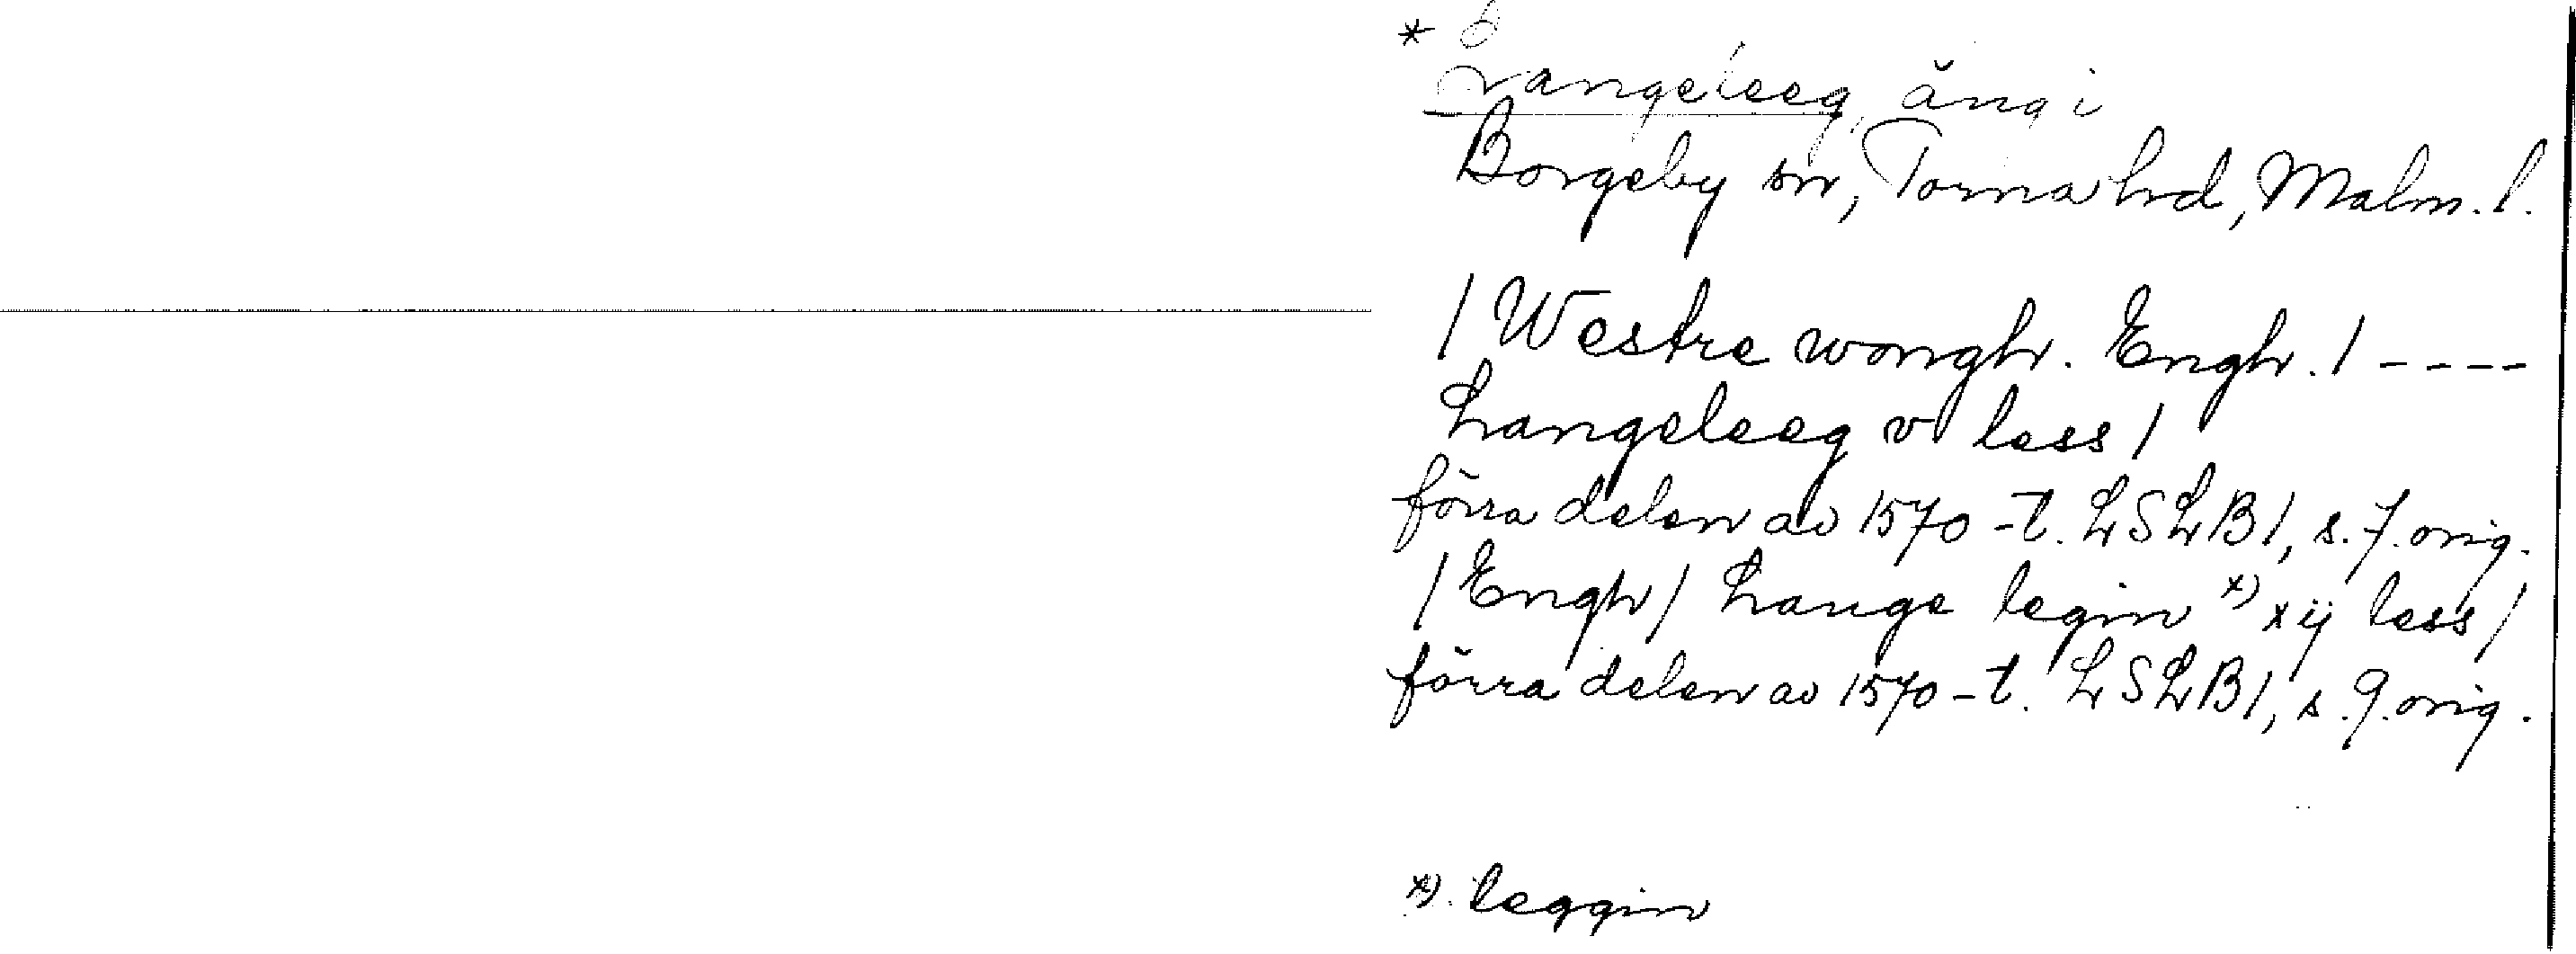 * Langeleeg, äng i
Borgeby sn, Torna hd, Malm. l.
/ Westre wongh. Engh. / - - - -
Langeleeg v less /
förra delen av 1570-t. LSLB 1, s. 7. orig.
/ Engh / Lange legin x) xij less /
förra delen av 1570-t. LSLB 1, s. 9. orig.
x) leggin